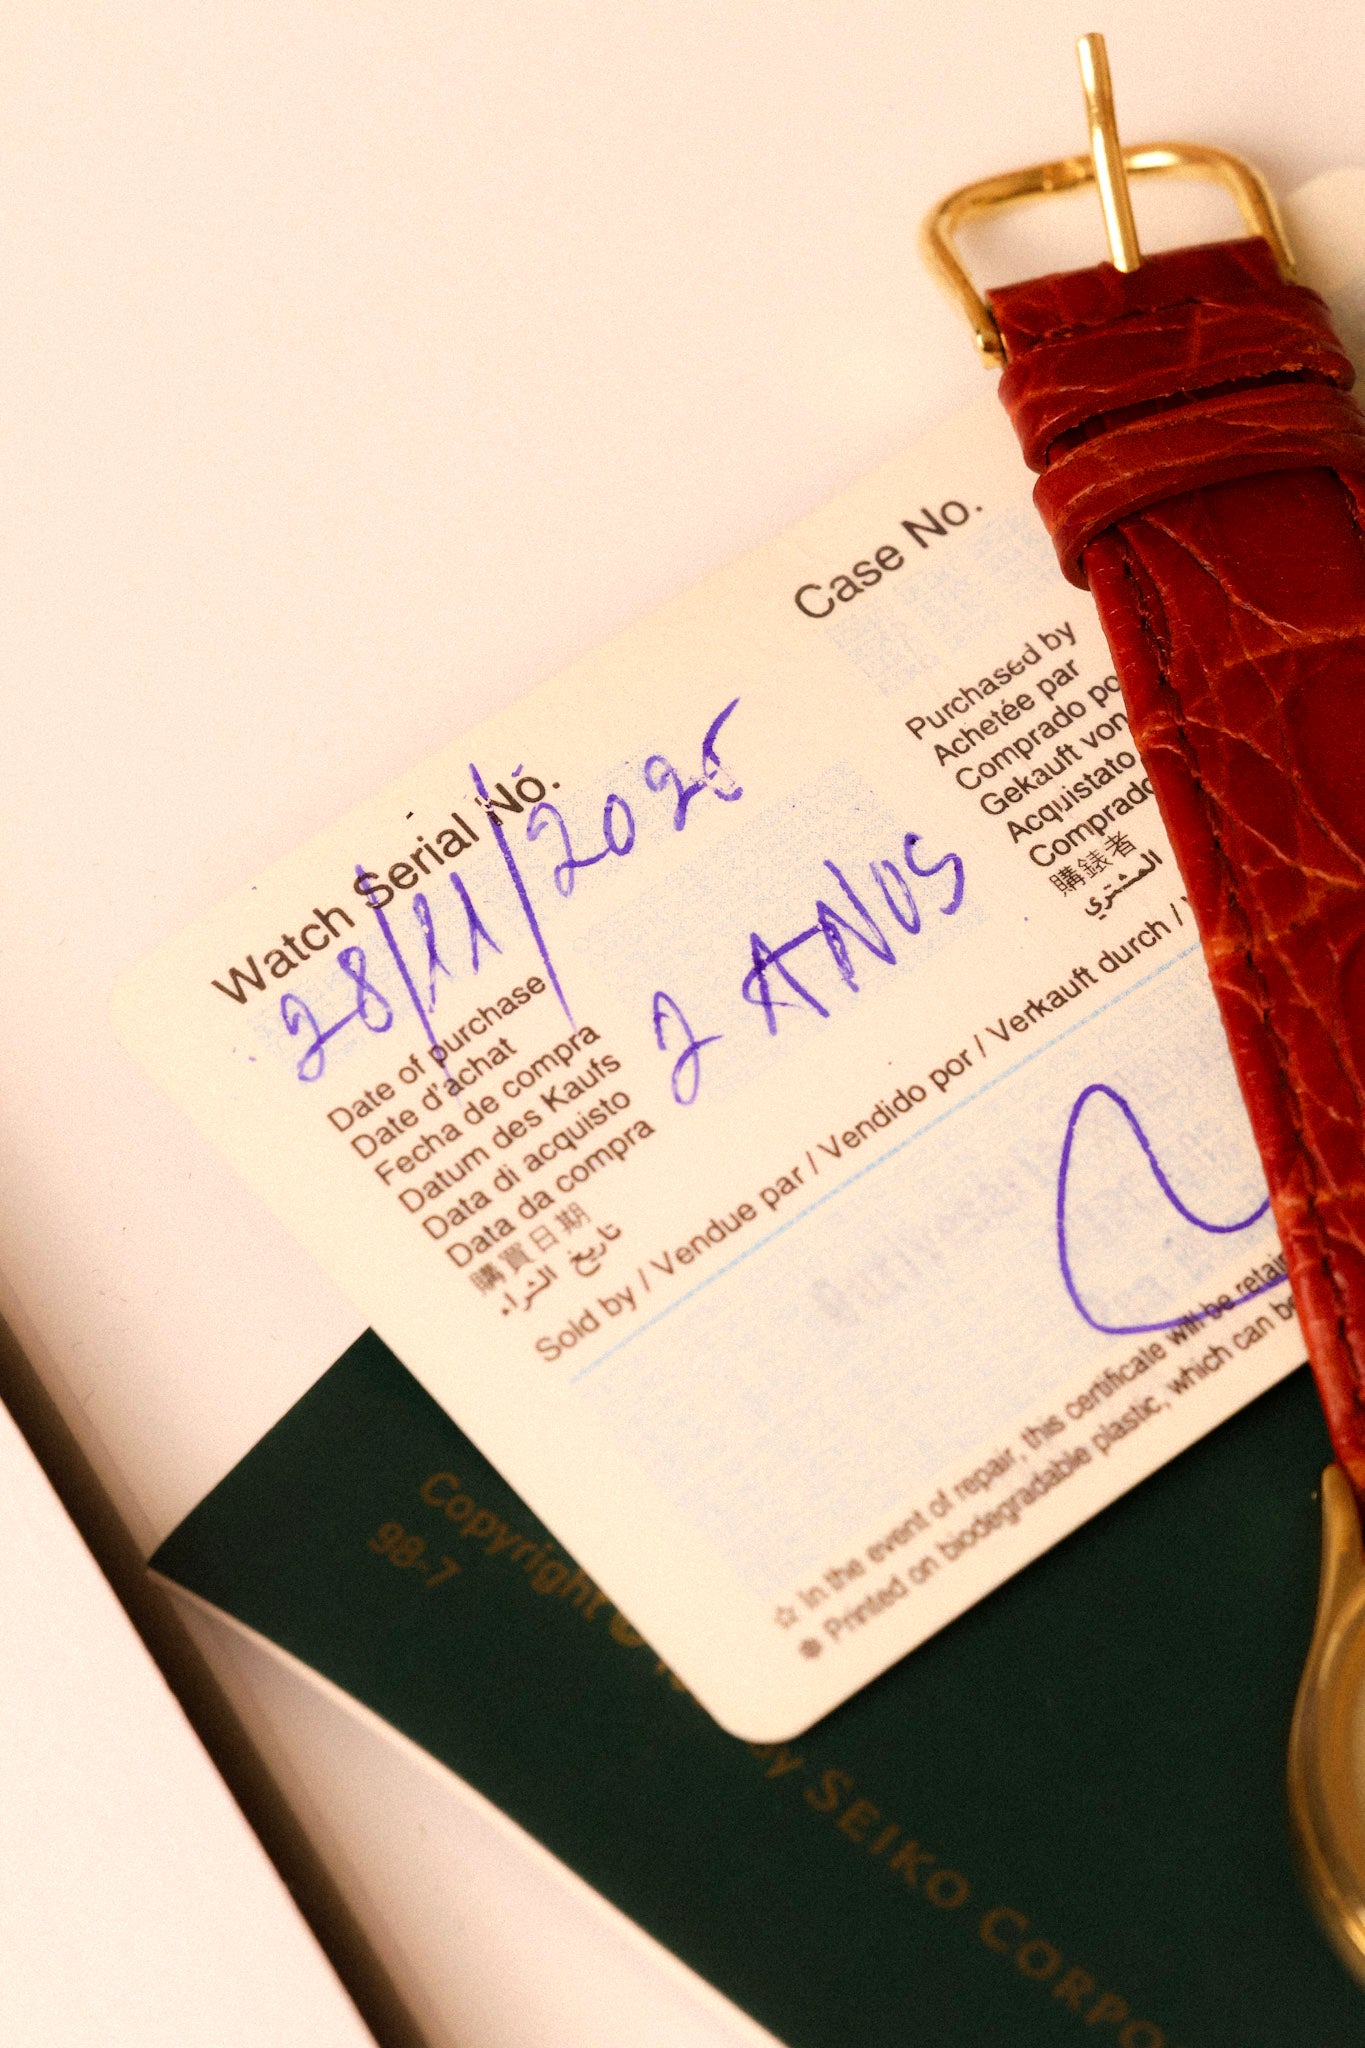 Watch Serial No.
Case No.
28/11/2025
2 ANOS
Date of purchase
Date d'achat
Fecha de compra
Datum des Kaufs
Data di acquisto
Data da compra
購買日期
تاريخ الشراء
Purchased by
Achetée par
Comprado po
Gekauft von
Acquistato
Comprado
購錶者
المشتري
Sold by / Vendue par / Vendido por / Verkauft durch /
☆ In the event of repair, this certificate will be retain
Printed on biodegradable plastic, which can be
Copyright ©
by SEIKO CORPO
98-7